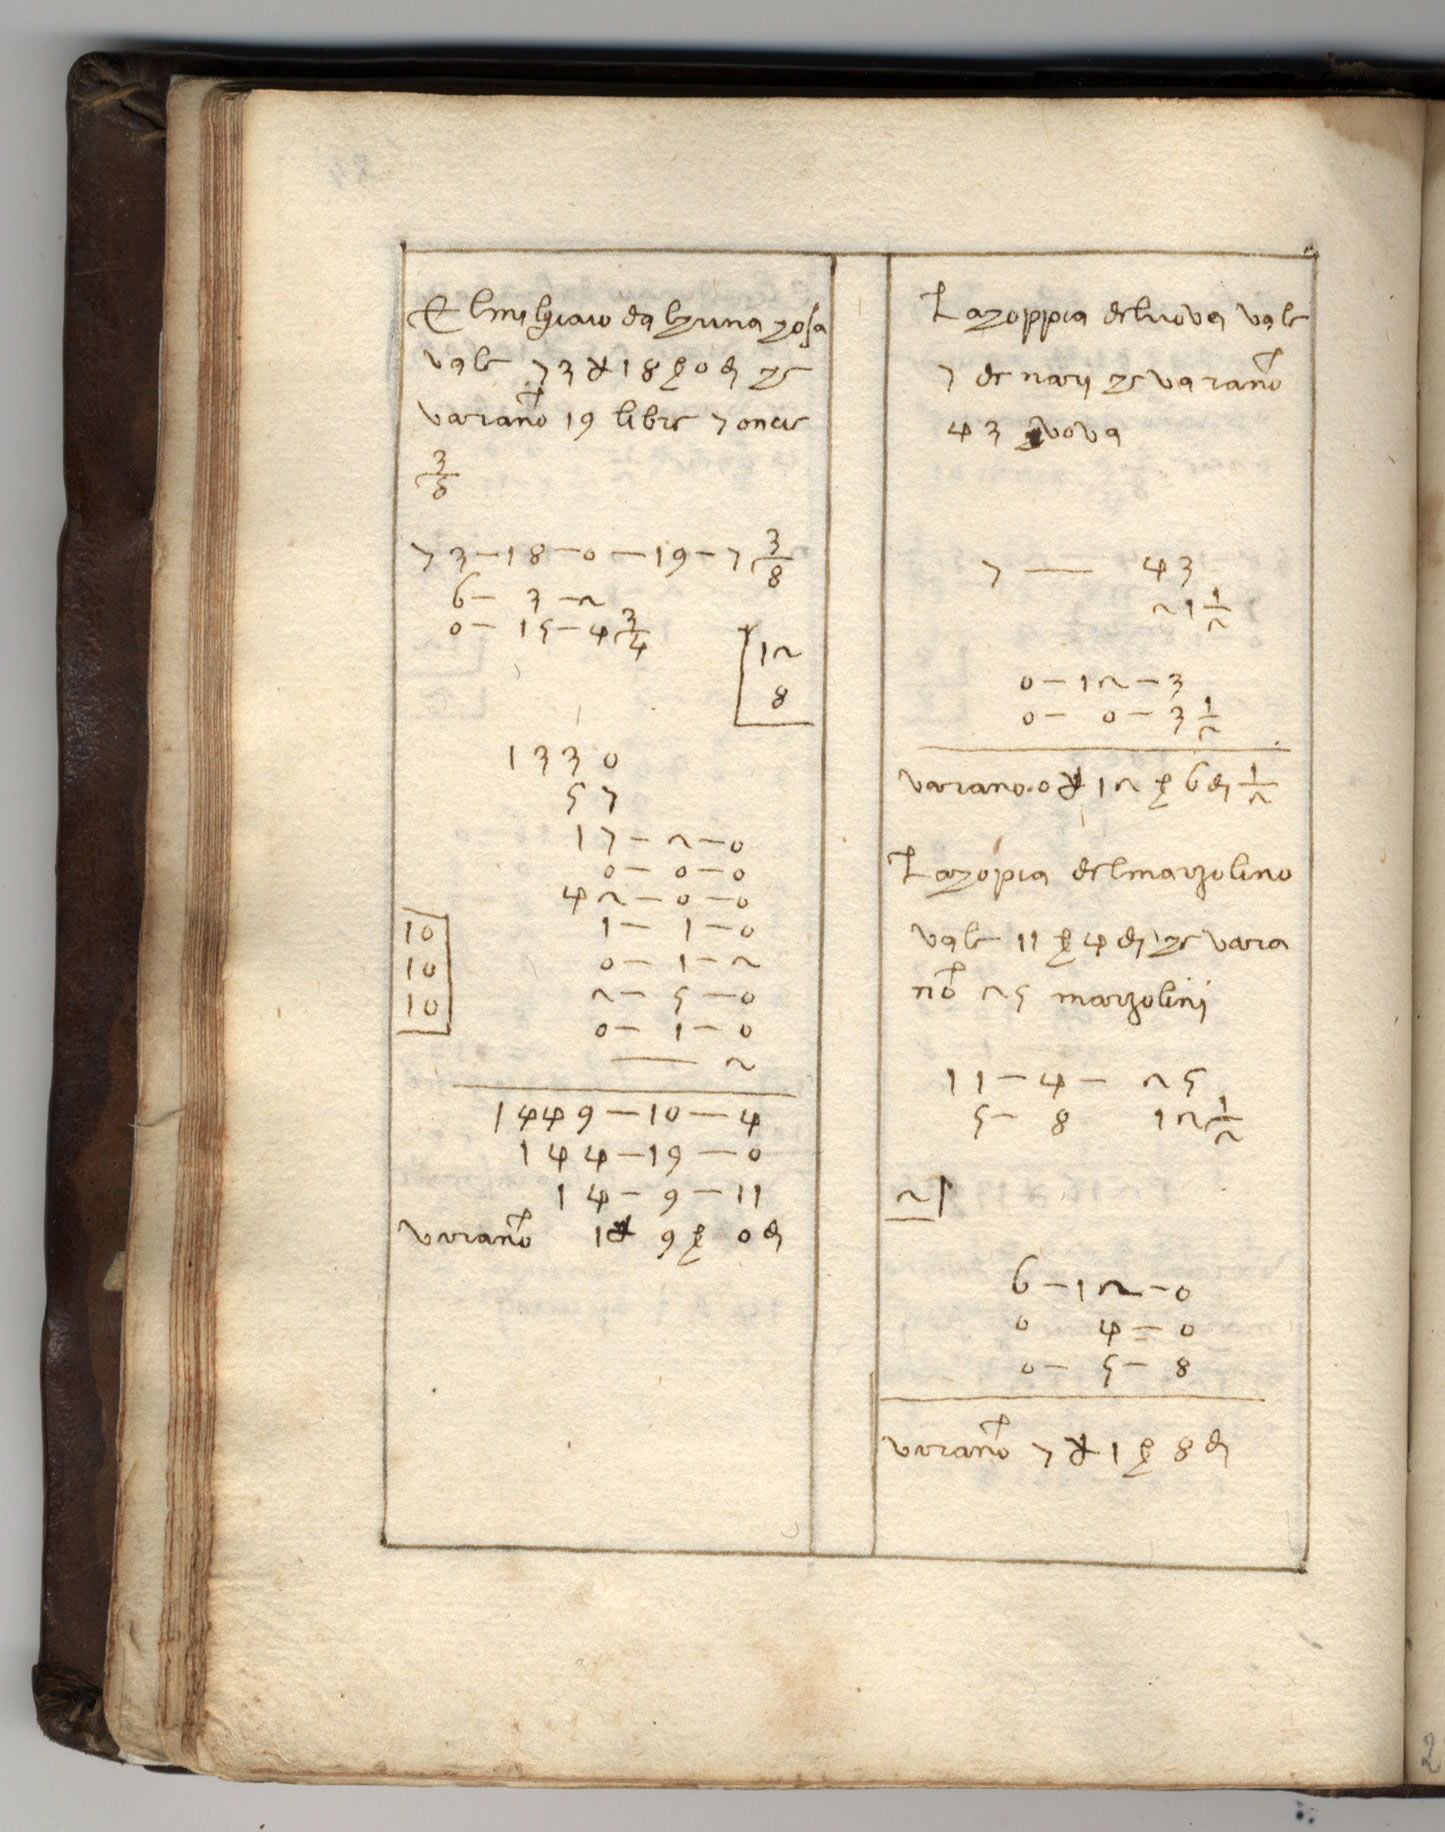 El migliaio dalcuna chosa
vale 73 ₰ 18 β 0 đ che
varano 19 libre 7 oncie
3/8
73 — 18 — 0 — 19 — 7 3/8
6 — 3 — 2
0 — 15 — 4 3/4
12
8
1330
57
17 — 2 — 0
0 — 0 — 0
42 — 0 — 0
10
1 — 1 — 0
10
0 — 1 — 2
10
2 — 5 — 0
0 — 1 — 0
— 2
1449 — 10 — 4
144 — 19 — 0
14 — 9 — 11
varano 1 ₰ 9 β 0 đ
La choppia del uova vale
7 denari che varano
43 uova
7 — 43
21 1/2
0 — 12 — 3
0 — 0 — 3 1/2
varano 0 ₰ 12 β 6 đ 1/2
La chopia del marzolino
vale 11 β 4 đ che vara
no 25 marzolini
11 — 4 — 25
5 — 8 12 1/2
2
6 — 12 — 0
0 4 — 0
0 — 5 — 8
varano 7 ₰ 1 β 8 đ